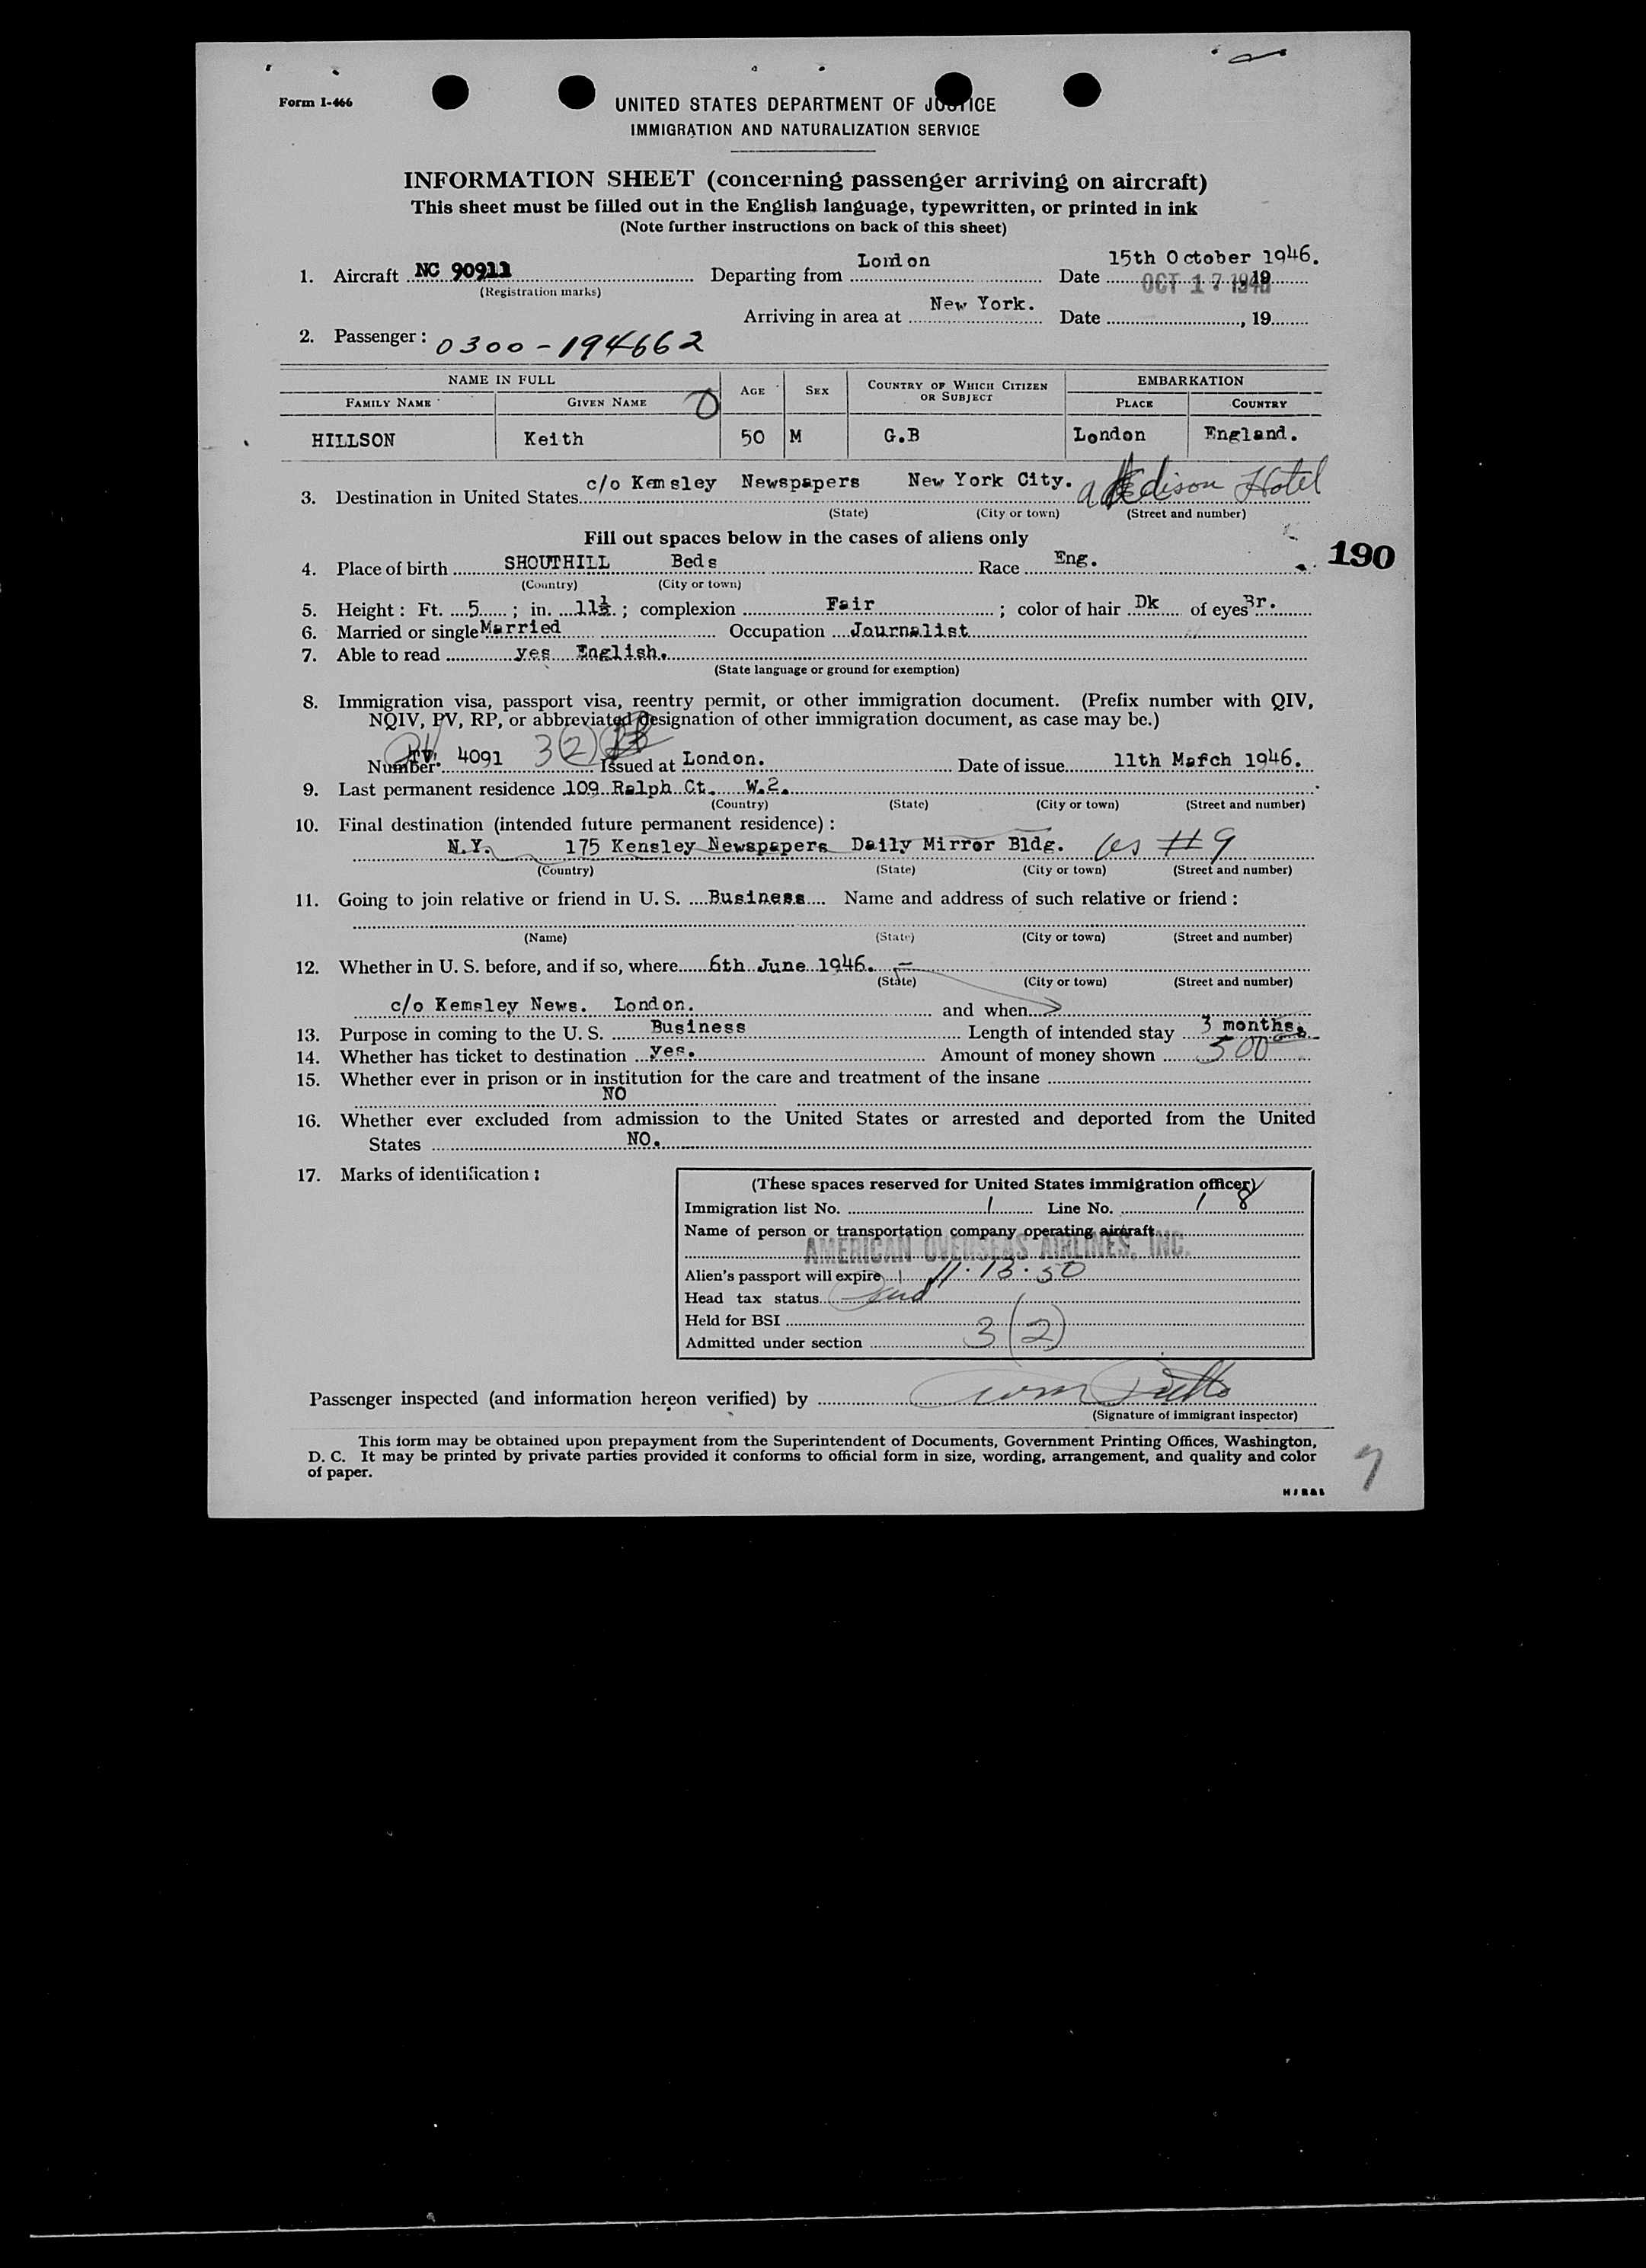 Form I-466
UNITED STATES DEPARTMENT OF JUSTICE
IMMIGRATION AND NATURALIZATION SERVICE
INFORMATION SHEET (concerning passenger arriving on aircraft)
This sheet must be filled out in the English language, typewritten, or printed in ink
(Note further instructions on back of this sheet)
1. Aircraft NC 90911 Departing from London Date 15th October 1946. OCT 17 1946, 19
(Registration marks)
Arriving in area at New York. Date, 19
2. Passenger: 0300-194662
NAME IN FULL AGE SEX COUNTRY OF WHICH CITIZEN OR SUBJECT EMBARKATION
FAMILY NAME GIVEN NAME PLACE COUNTRY
HILLSON Keith 50 M G.B London England.
3. Destination in United States c/o Kemsley Newspapers New York City. Edison Hotel
(State) (City or town) (Street and number)
Fill out spaces below in the cases of aliens only
190
4. Place of birth SHOUTHILL Beds Race Eng.
(Country) (City or town)
5. Height: Ft. 5; in. 11½; complexion Fair; color of hair Dk of eyes Br.
6. Married or single Married Occupation Journalist
7. Able to read yes English.
(State language or ground for exemption)
8. Immigration visa, passport visa, reentry permit, or other immigration document. (Prefix number with QIV,
NQIV, PV, RP, or abbreviated designation of other immigration document, as case may be.)
Number 4091 3(2) Issued at London. Date of issue 11th March 1946.
9. Last permanent residence 109 Ralph Ct. W.2.
(Country) (State) (City or town) (Street and number)
10. Final destination (intended future permanent residence):
N.Y. 175 Kensley Newspapers Daily Mirror Bldg. #9
(Country) (State) (City or town) (Street and number)
11. Going to join relative or friend in U. S. Business Name and address of such relative or friend:
(Name) (State) (City or town) (Street and number)
12. Whether in U. S. before, and if so, where 6th June 1946.
(State) (City or town) (Street and number)
c/o Kemsley News. London. and when
13. Purpose in coming to the U. S. Business Length of intended stay 3 months.
14. Whether has ticket to destination yes. Amount of money shown 500
15. Whether ever in prison or in institution for the care and treatment of the insane
NO
16. Whether ever excluded from admission to the United States or arrested and deported from the United
States NO.
17. Marks of identification:
(These spaces reserved for United States immigration officer)
Immigration list No. 1 Line No. 8
Name of person or transportation company operating aircraft
AMERICAN OVERSEAS AIRLINES, INC.
Alien's passport will expire 11·13·50
Head tax status
Held for BSI
Admitted under section 3(2)
Passenger inspected (and information hereon verified) by
(Signature of immigrant inspector)
This form may be obtained upon prepayment from the Superintendent of Documents, Government Printing Offices, Washington,
D. C. It may be printed by private parties provided it conforms to official form in size, wording, arrangement, and quality and color
of paper.